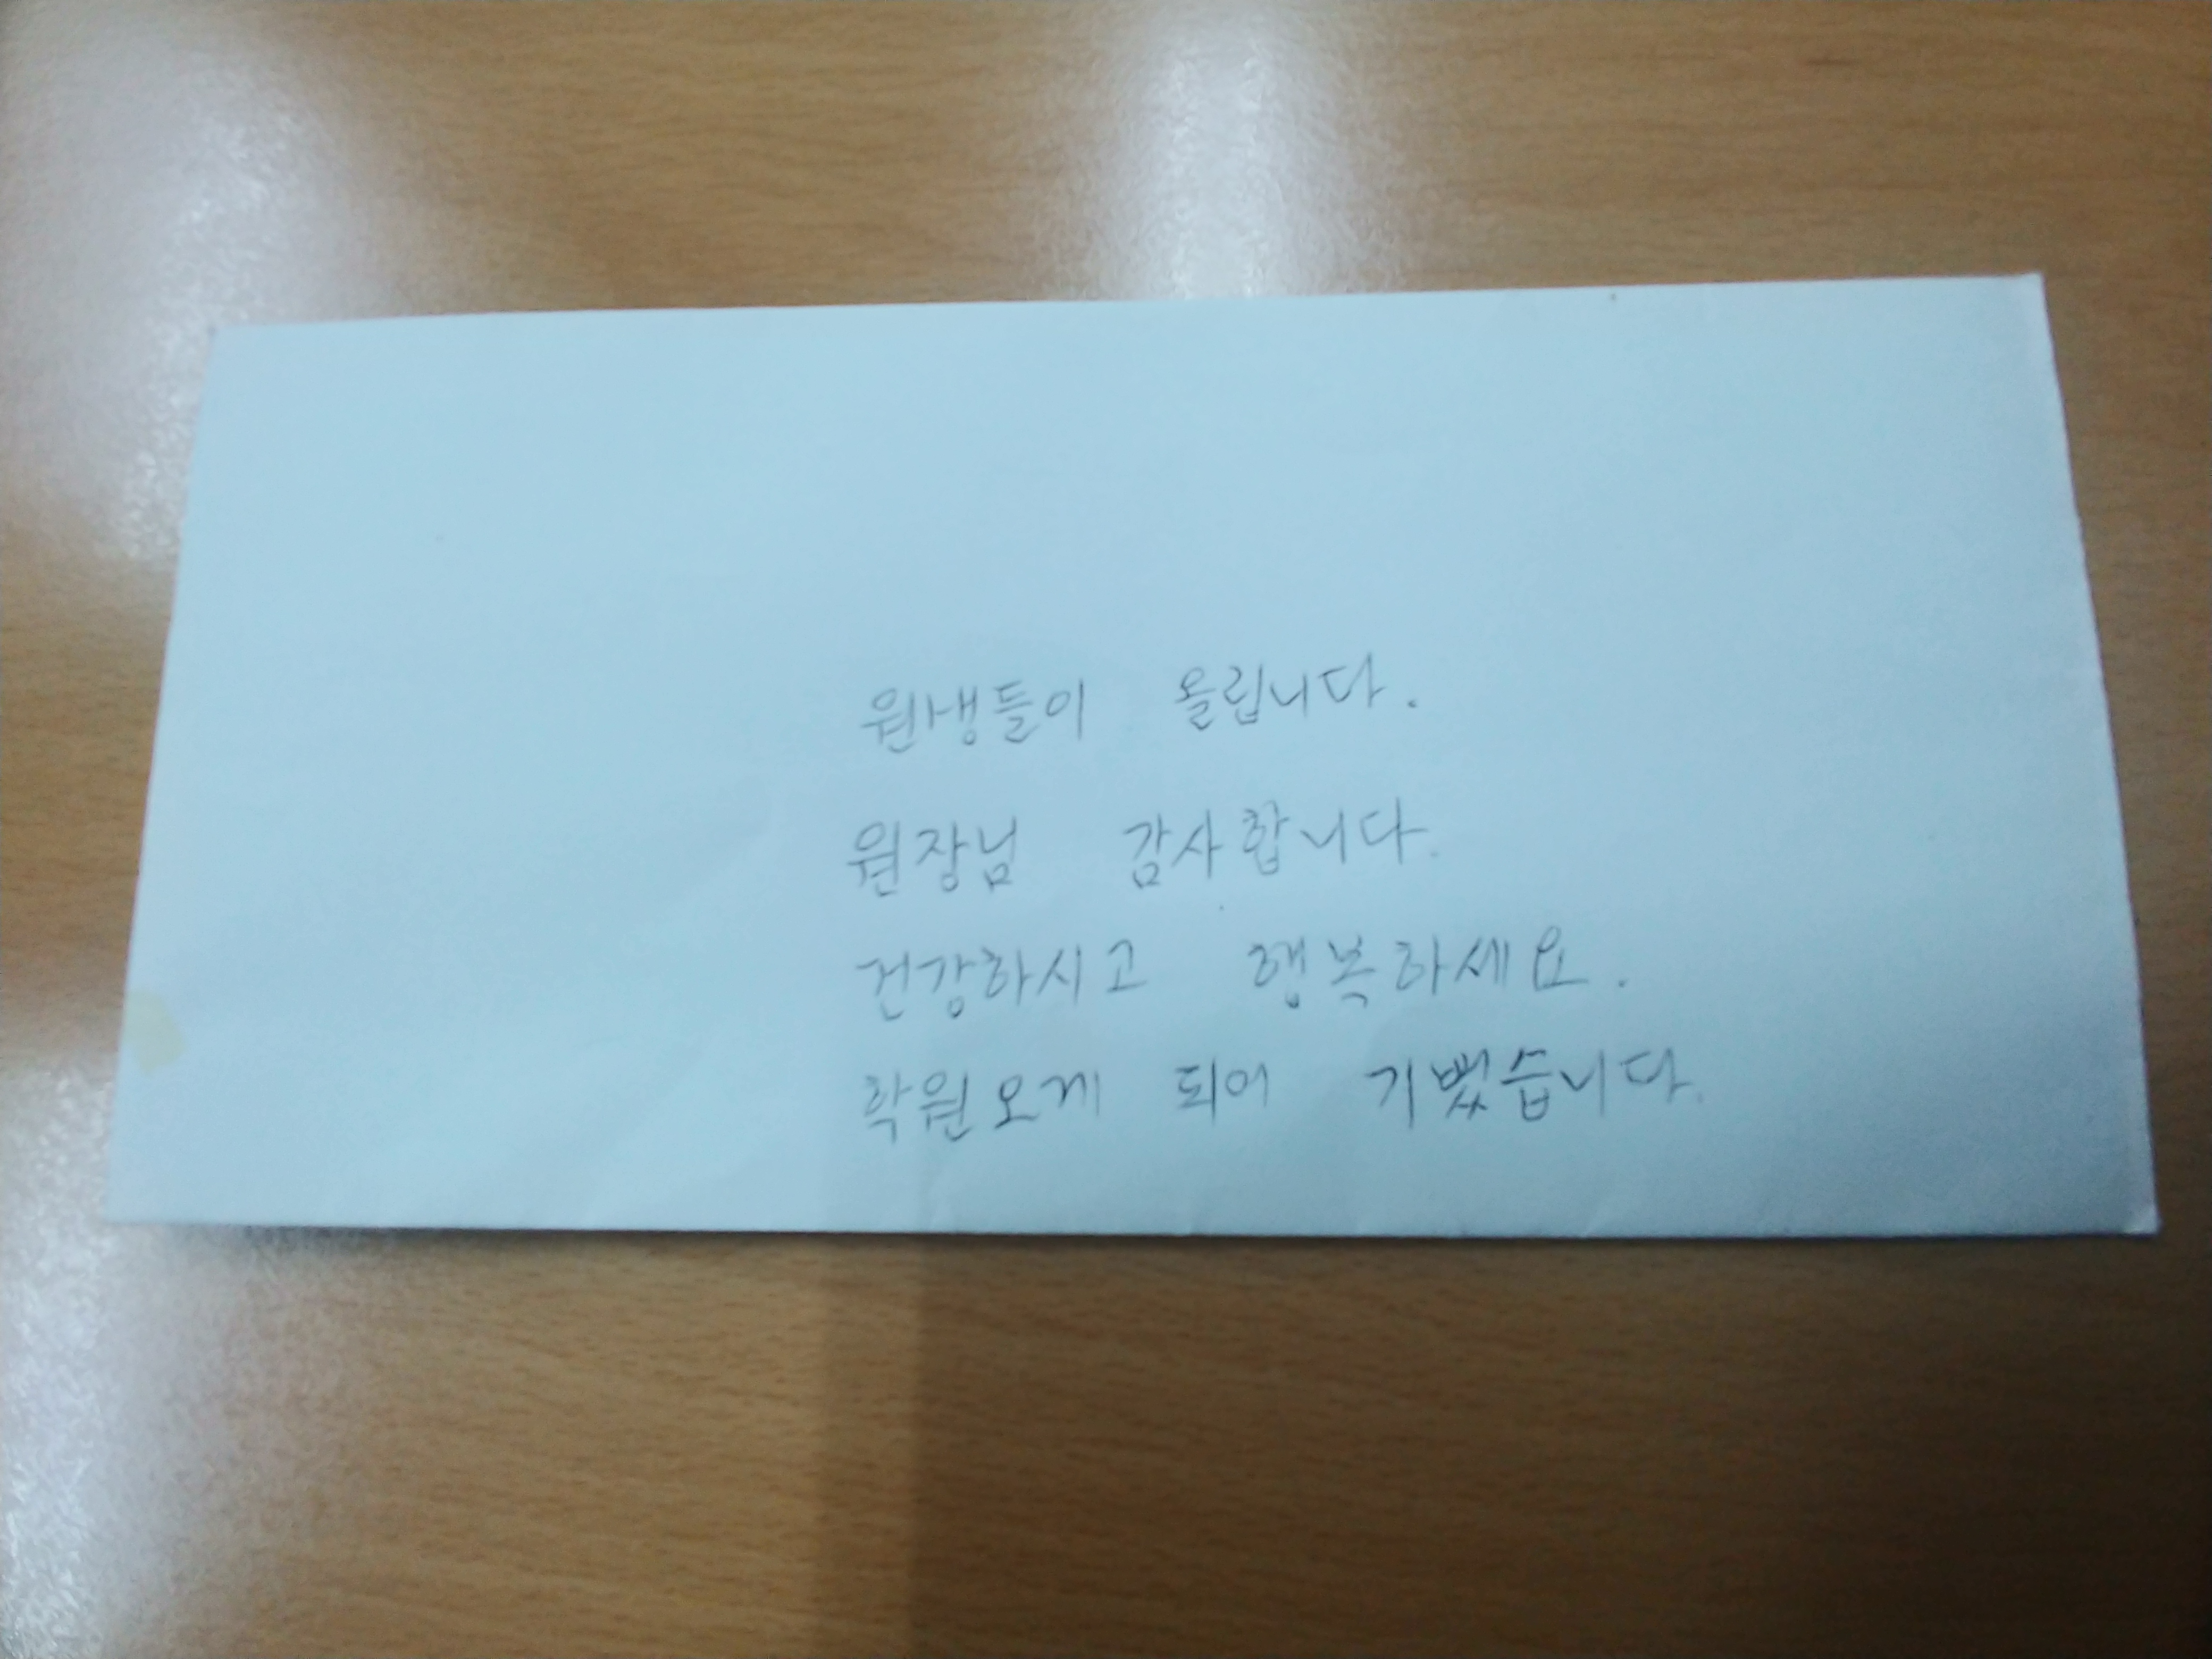 원생들이 올립니다.
원장님 감사합니다.
건강하시고 행복하세요.
학원오게 되어 기뻤습니다.